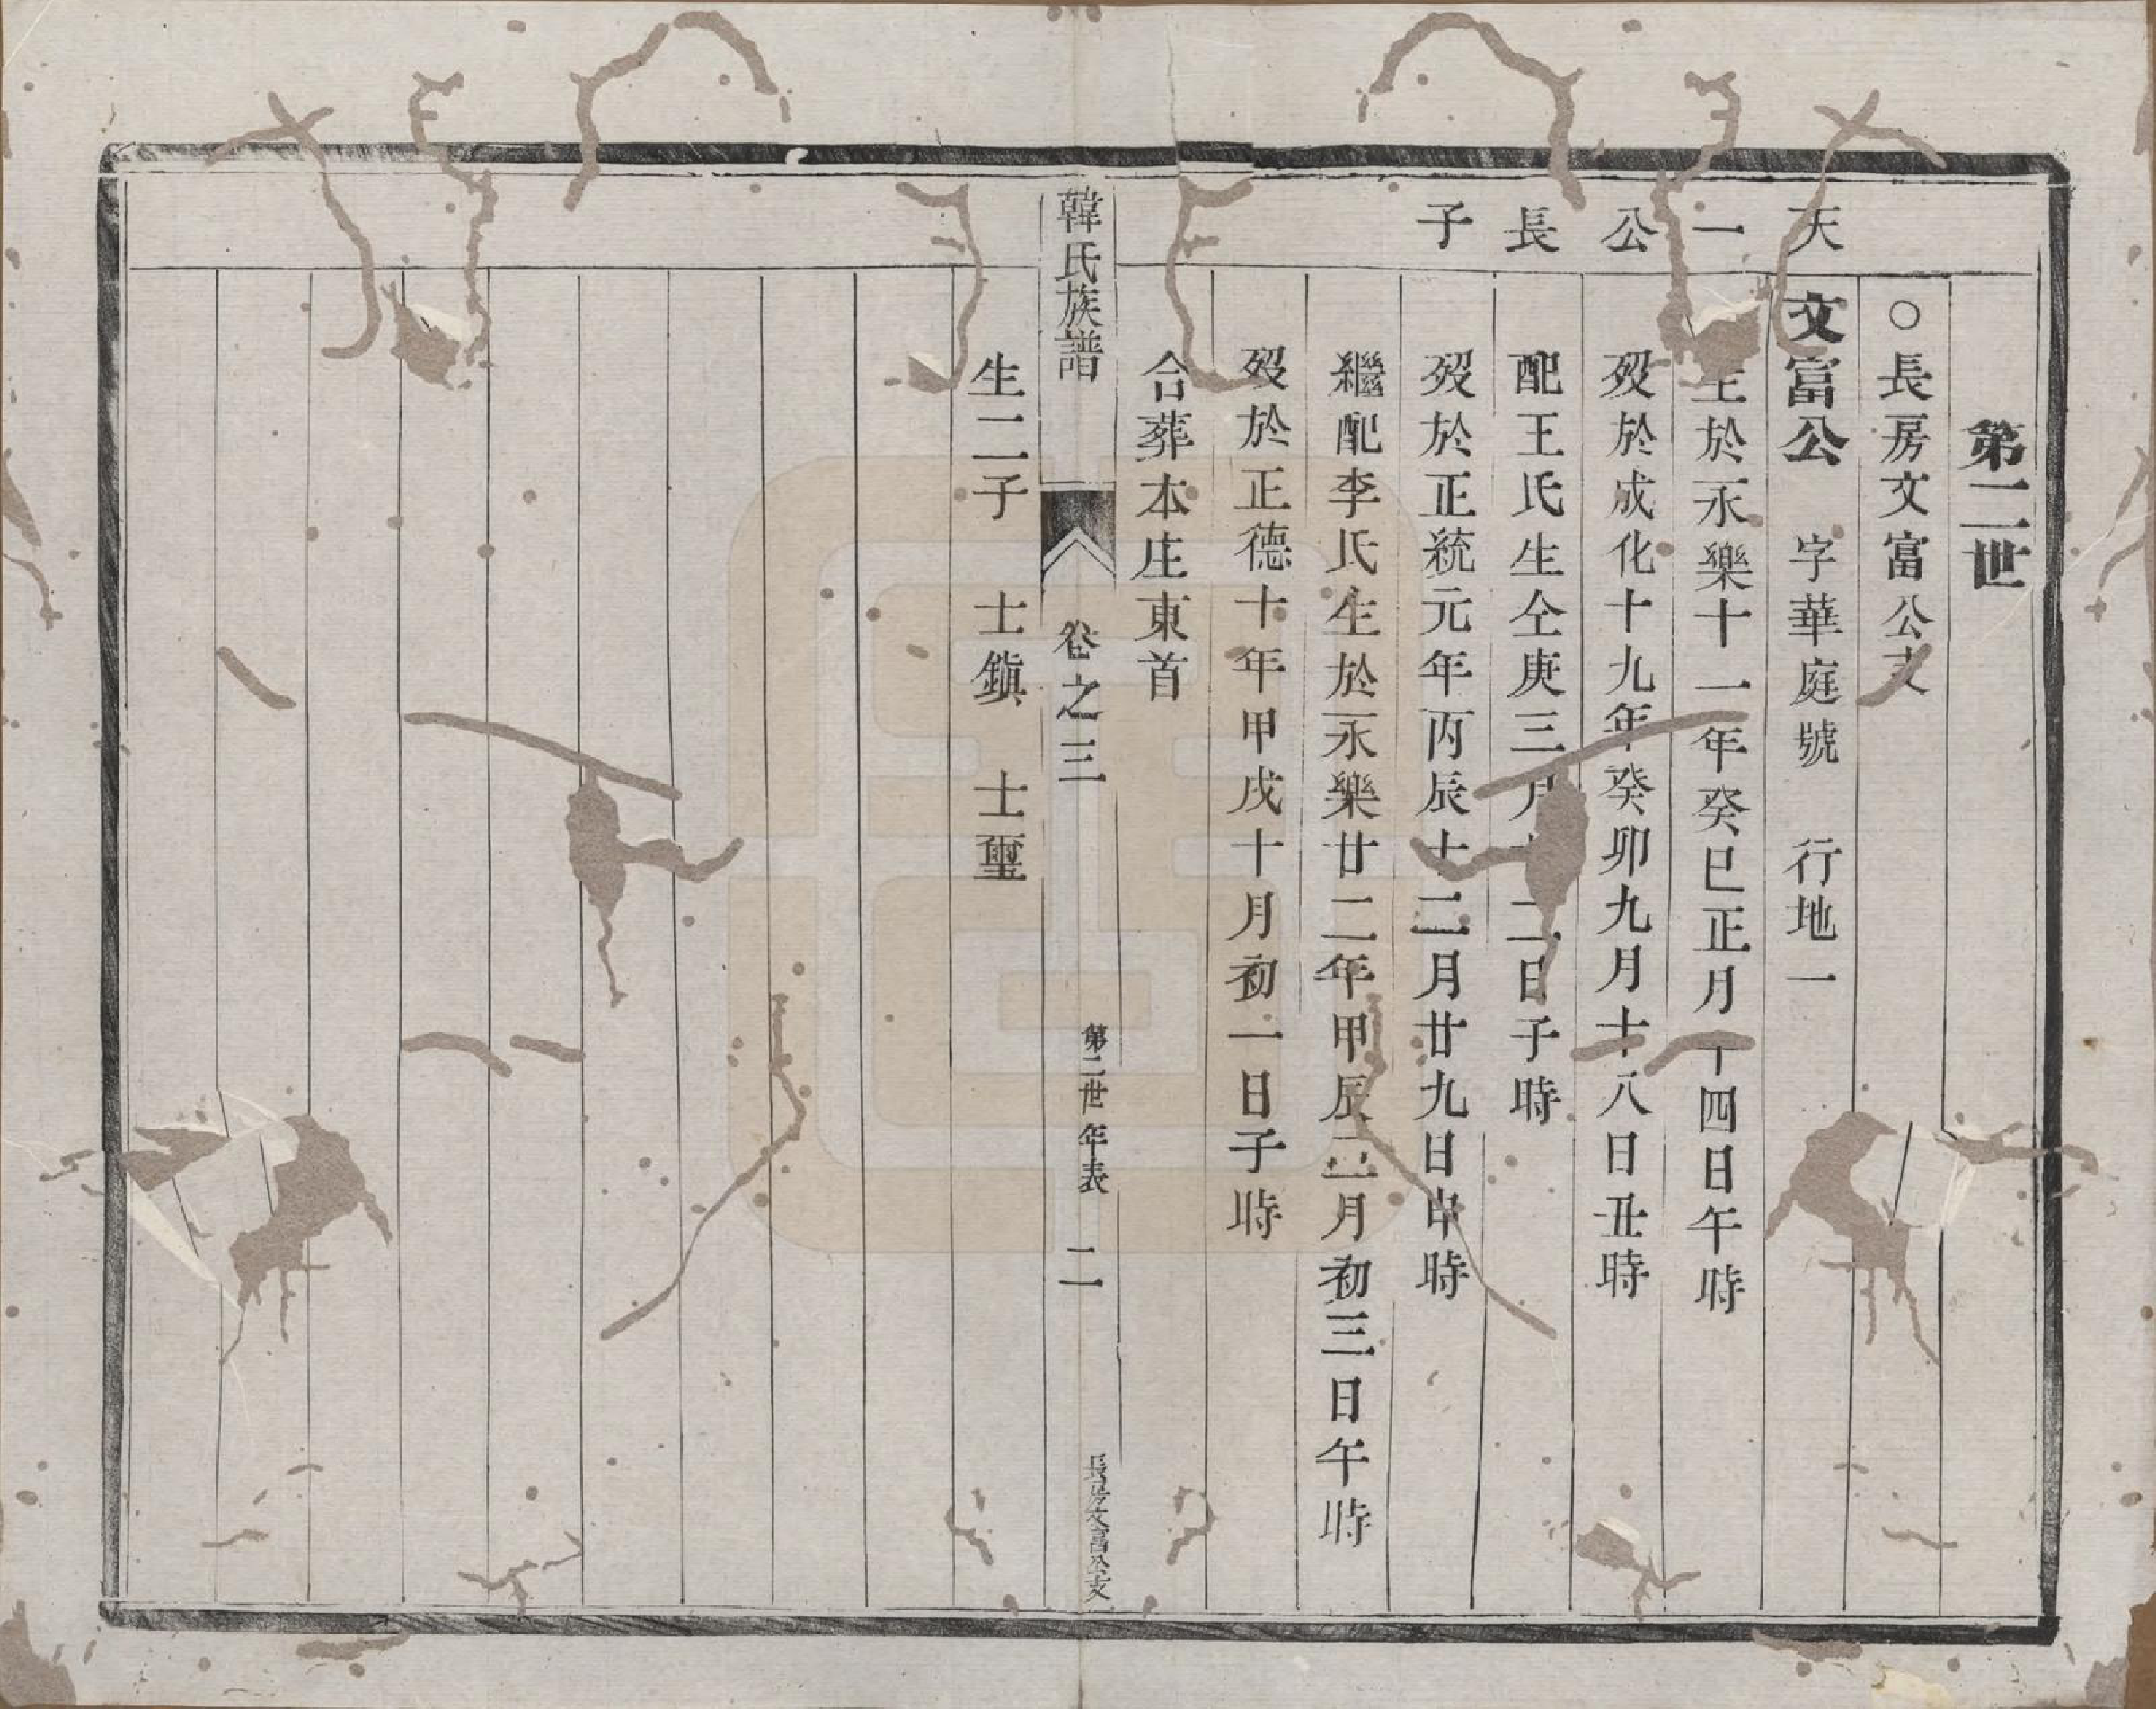 第二世
○長房文富公支
天一公長子
文富公 字華庭號 行地一
生於永樂十一年癸巳正月十四日午時
歿於成化十九年癸卯九月十八日丑時
配王氏生仝庚三月二日子時
歿於正統元年丙辰十二月廿九日申時
繼配李氏生於永樂廿二年甲辰二月初三日午時
歿於正德十年甲戌十月初一日子時
合葬本庄東首
韓氏族譜 卷之三 第二世年表 二 長房文富公支
生二子 士鎮 士璽